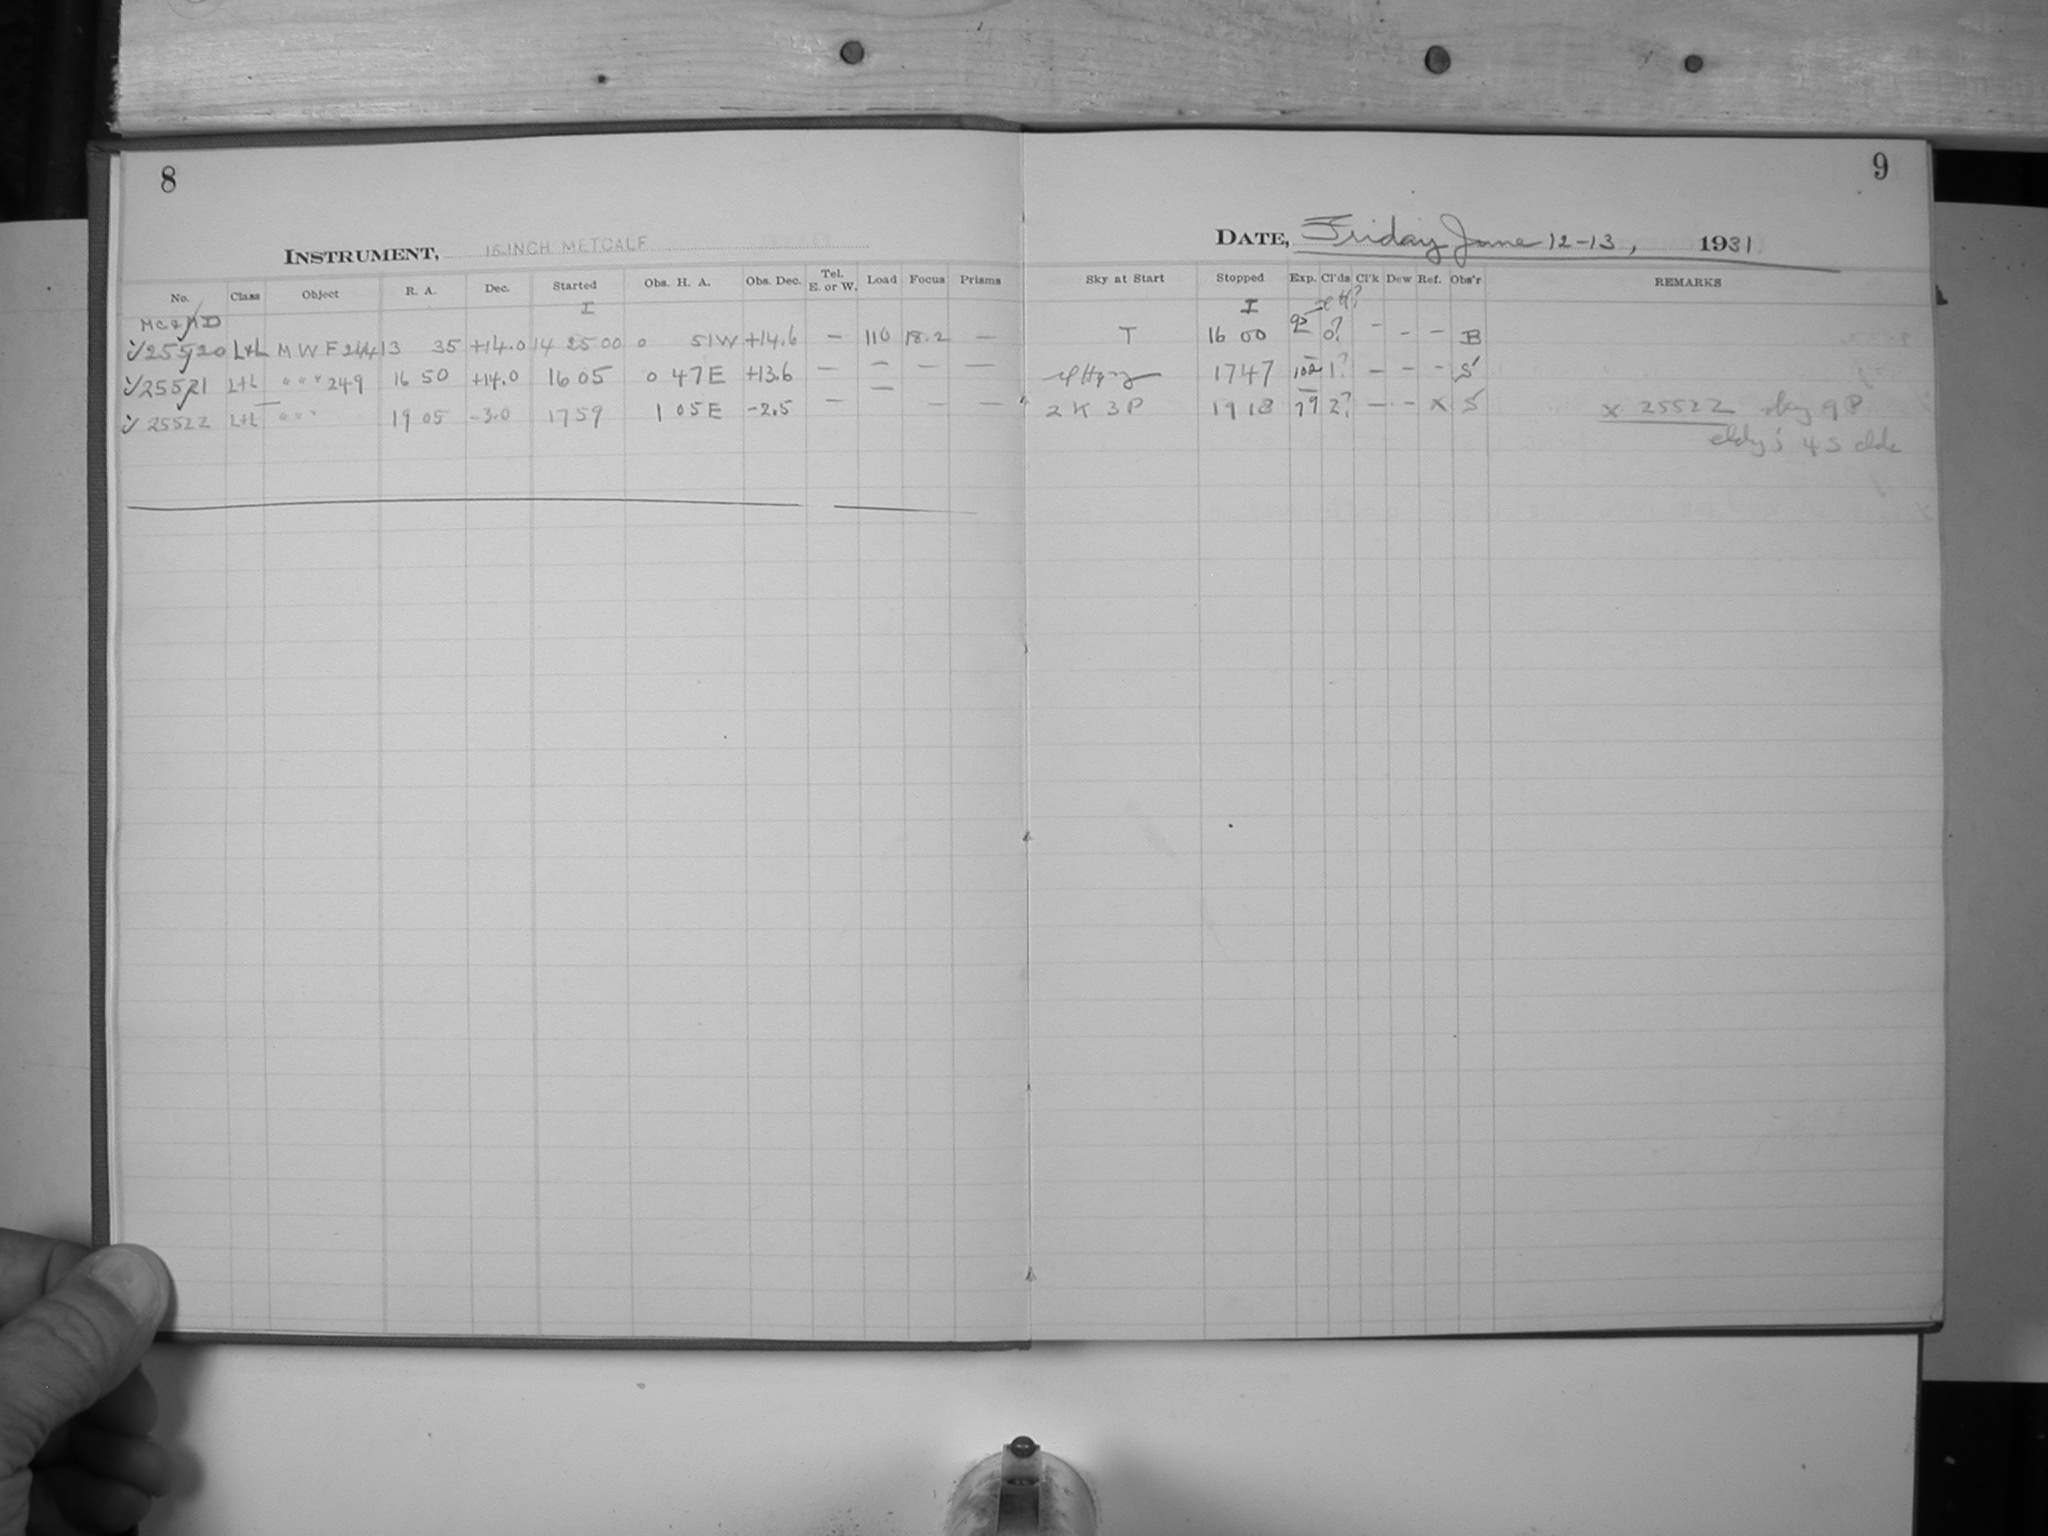 8
INSTRUMENT, 16-INCH METCALF
No. Class Object R. A. Dec. Started Obs. H. A. Obs. Dec. Tel. E. or W. Load Focus Prisms
I
MC & MD
✓25520 L+L MWF 244 13 35 +14.0 14 25 00 0 51W +14.6 — 110 18.2 —
✓25521 L+L " " " 249 16 50 +14.0 16 05 0 47E +13.6 — — — —
✓25522 L+L " " " 19 05 -3.0 17 59 1 05E -2.5 — — — —
9
DATE, Friday June 12-13, 1931
Sky at Start Stopped Exp. Cl'ds Cl'k Dew Ref. Obs'r REMARKS
I
T 16 00 95 0? — — — B
1747 102 1? — — — S
2 K 3 P 19 18 79 2? — — x S x 25522 sky 9 P
cldy; 4 S clds